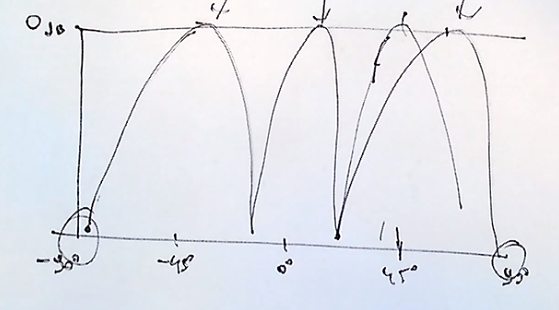 0dB
-90° -45° 0° 45° 90°